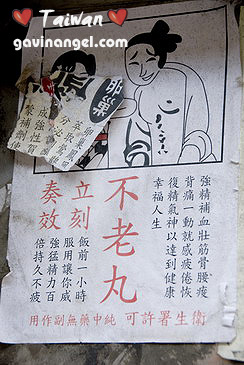 Taiwan
gavinangel.com
卵巢
強精補血壯筋骨腰痠
背痛一動就感疲倦恢
復精氣神以達到健康
幸福人生
不老丸
立刻
奏效
飯前一小時
服用讓你威
強猛精力百
倍持久不疲
衛生署許可 純中藥無副作用